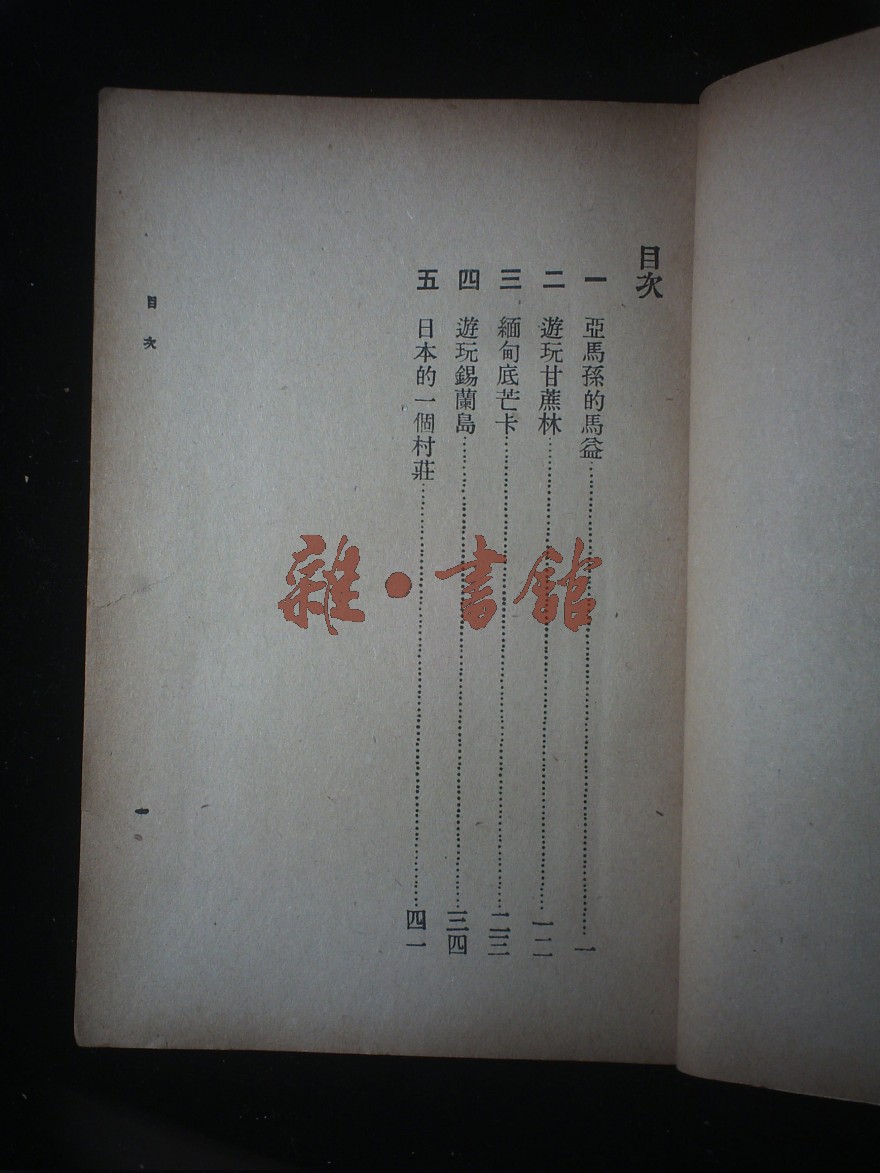 目次
一 亞馬孫的馬益……一
二 遊玩甘蔗林……一二
三 緬甸底芒卡……二三
四 遊玩錫蘭島……三四
五 日本的一個村莊……四一
目次 一
雜·書館